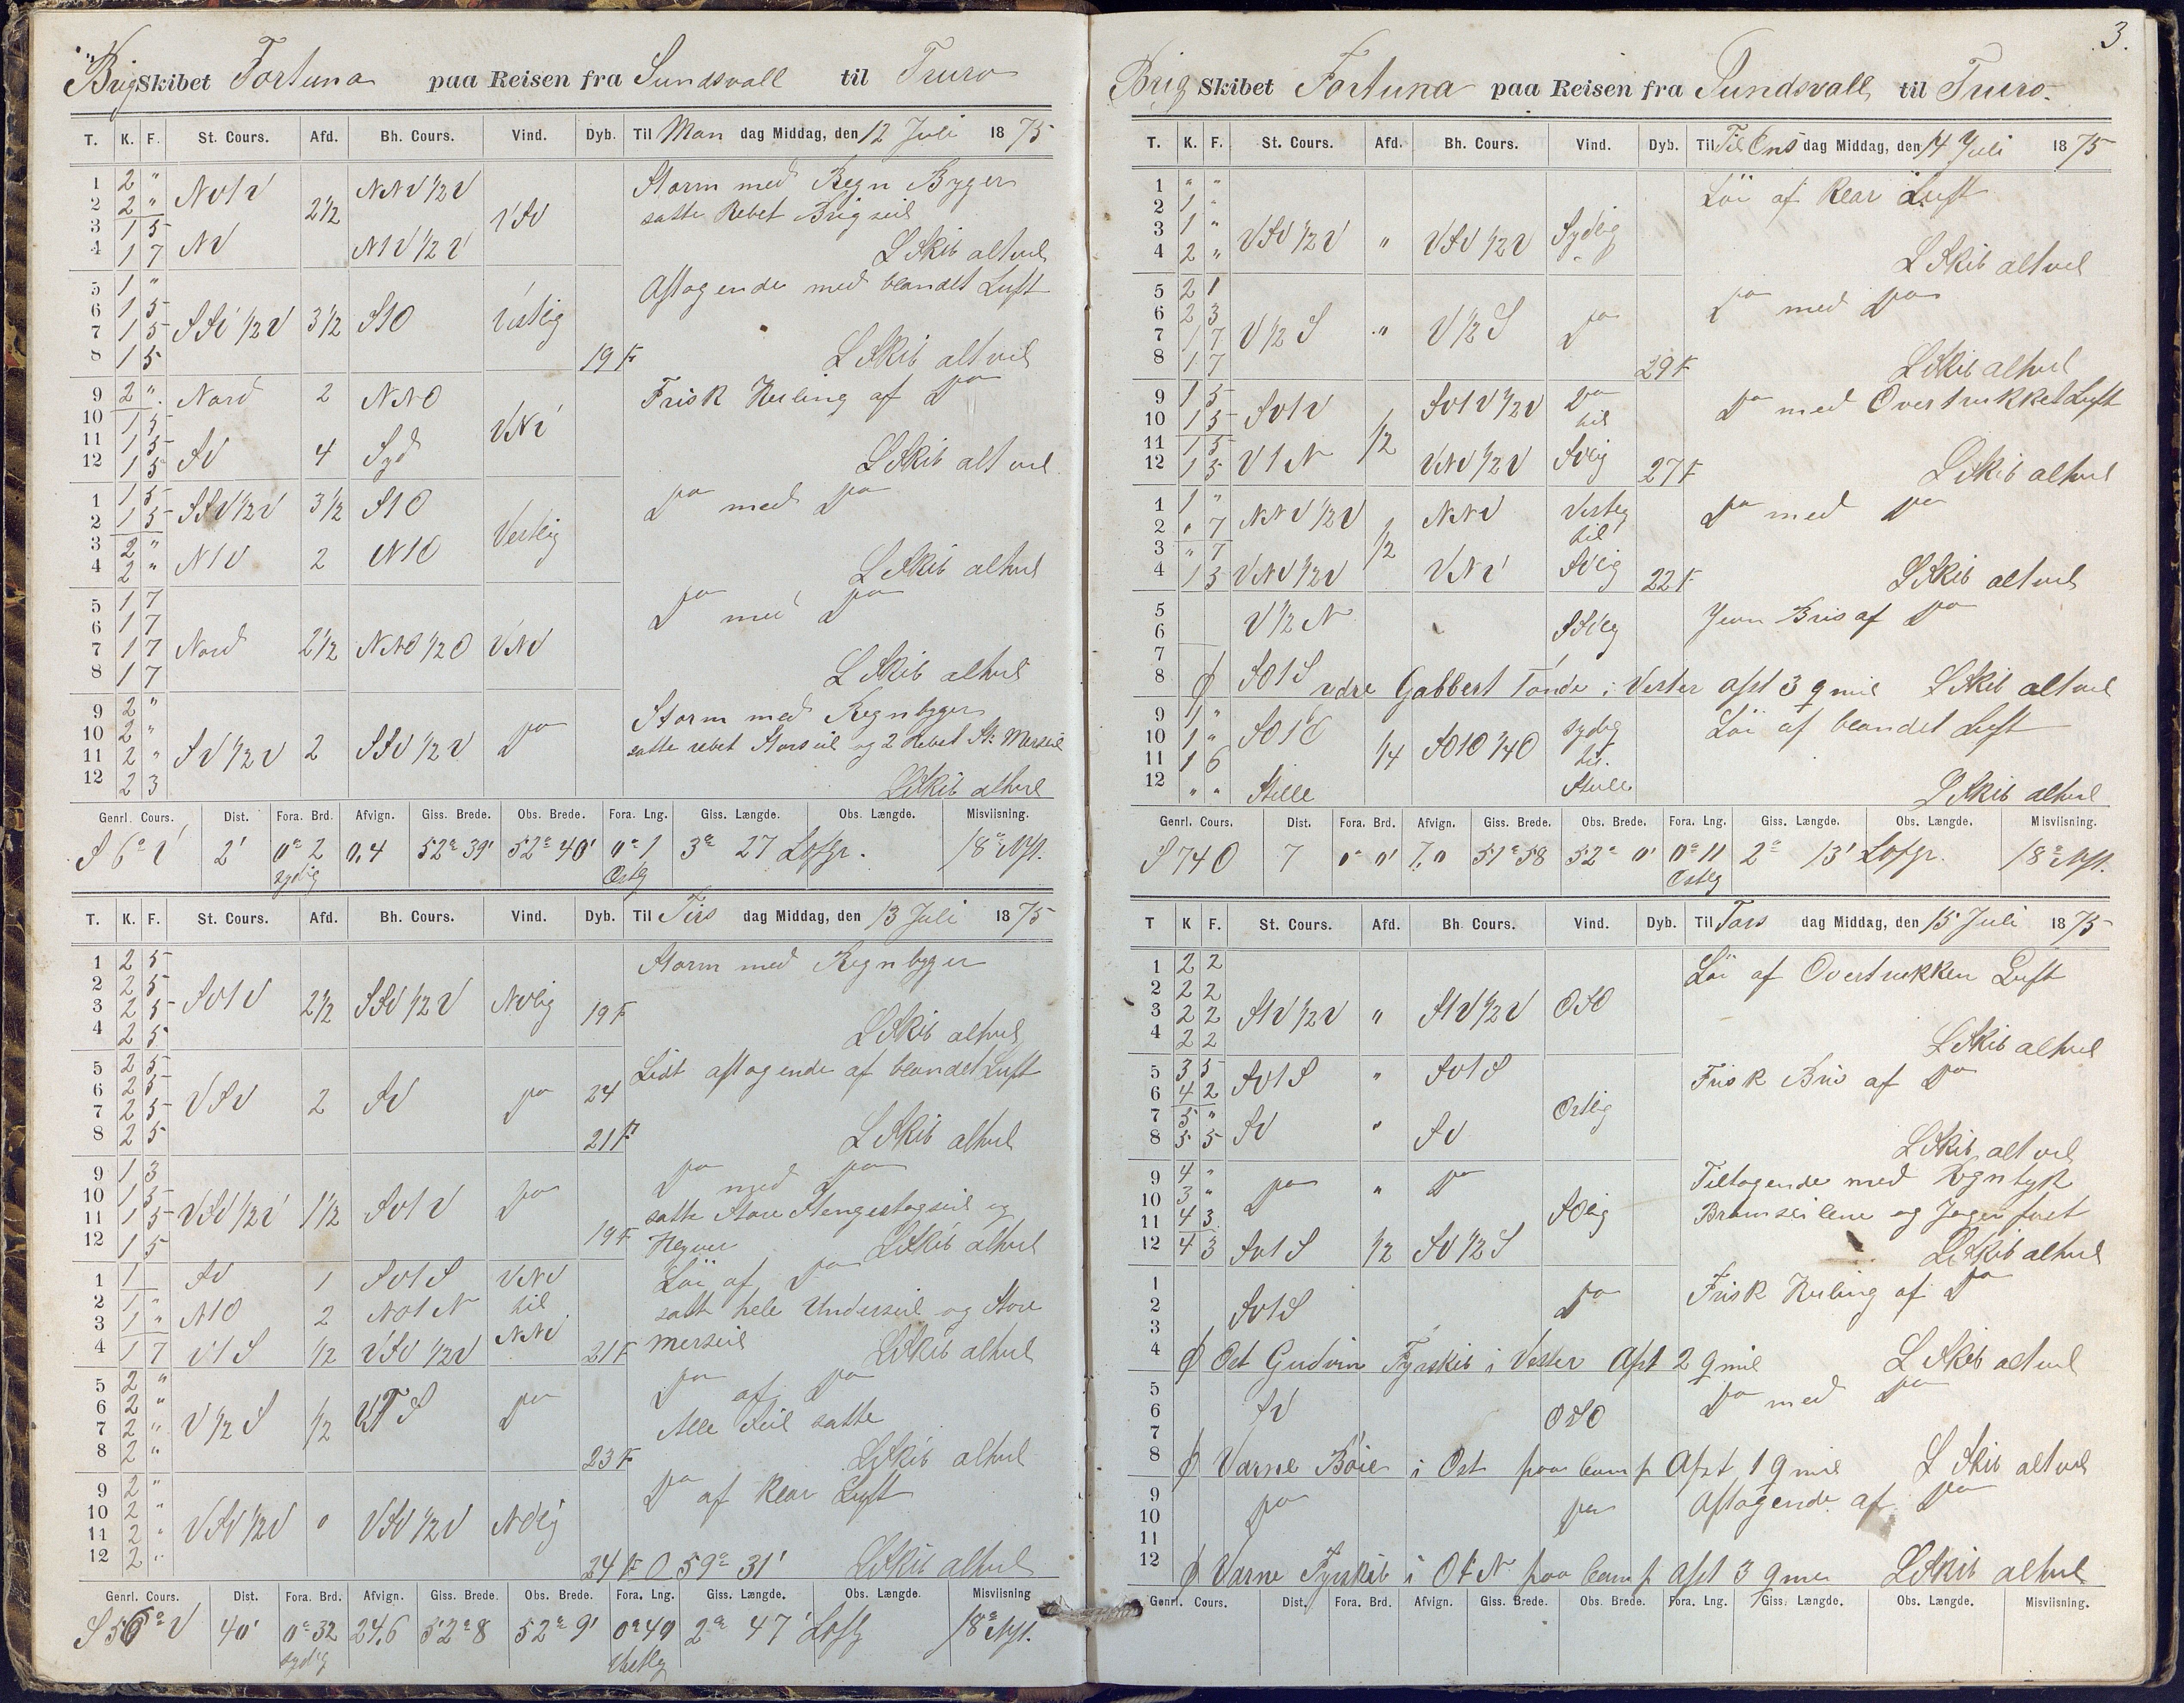 Brig Skibet Fortuna paa Reisen fra Sundsvall til Truro
T. K. F. St. Cours. Afd. Bh. Cours. Vind. Dyb. Til Man dag Middag, den 12 Juli 1875
1 2 " NV1V 2½ NNV½V VSV Storm med Regn Byger
2 2 " satte Rebet Brigseil
3 1 5 NV NV1V½V
4 1 7 L Skib altvel
5 1 " Aftagende med blandet Luft
6 1 5 SSV½V 3½ S1O Vestlig
7 1 5
8 1 5 19 F L Skib altvel
9 2 " Nord 2 NNO VNV Frisk Kuling af Do
10 1 5
11 1 5 SV 4 Syd
12 1 5 L Skib altvel
1 1 5 SSV½V 3½ S1O Vestlig Do med Do
2 1 5
3 2 " N1V 2 N1O
4 2 " L Skib altvel
5 1 7 Do med Do
6 1 7
7 1 7 Nord 2½ NNO½O VNV
8 1 7 L Skib altvel
9 2 " Storm med Regnbyger
10 2 " satte rebet Storseil og 2 Rebet St: Merseil
11 2 " SV½V 2 SSV½V Do
12 2 3 L Skib altvel
Genrl. Cours. Dist. Fora. Brd. Afvign. Giss. Brede. Obs. Brede. Fora. Lng. Giss. Længde. Obs. Længde. Misviisning.
S 6° V 2' 0° 2 0,4 52° 39' 52° 40' 0° 1 3° 27 Lofgr. 18° NVst.
sydlig Østlig
T. K. F. St. Cours. Afd. Bh. Cours. Vind. Dyb. Til Tirs dag Middag, den 13 Juli 1875
1 2 5 Storm med Regnbyger
2 2 5
3 2 5 SV1V 2½ SSV½V NVlig 19 F
4 2 5 L Skib altvel
5 2 5 Lidt aftagende af blandet Luft
6 2 5 24
7 2 5 VSV 2 SV Do
8 2 5 21 F L Skib altvel
9 1 3 Do med Do
10 1 5 satte Store Stengestagseil og
11 1 5 VSV½V 1½ SV1V Do
12 1 5 19 F L Skib altvel
1 1 SV 1 SV1S VNV Löi af Do
2 1 " N1O 2 NO1N til satte hele Underseil og Store
3 1 " NNV Merseil
4 1 7 V1S ½ VSV½V 21 F L Skib altvel
5 2 " Do af Do
6 2 " V½S ½ Do Alle Seil satte
7 2 "
8 2 " 23 F L Skib altvel
9 2 " Do af klar Luft
10 2 "
11 2 " VSV½V " VSV½V NVlig
12 2 " 24 F O 59° 31' L Skib altvel
Genrl. Cours. Dist. Fora. Brd. Afvign. Giss. Brede. Obs. Brede. Fora. Lng. Giss. Længde. Obs. Længde. Misviisning
S 50° V 40' 0° 32 24,6 52° 8 52° 9' 0° 40 2° 47' Lofg 18° NVst.
sydlig Vestlig
3.
Brig Skibet Fortuna paa Reisen fra Sundsvall til Truro
T. K. F. St. Cours. Afd. Bh. Cours. Vind. Dyb. Til Ons dag Middag, den 14 Juli 1875
1 " " Löi af klar Luft
2 1 "
3 1 " VSV½V " VSV½V Sydlig
4 2 " L Skib altvel
5 2 1 Do med Do
6 2 3
7 1 7 V½S " V½S Do
8 1 7 29 F L Skib altvel
9 1 5 SV1V ½ SV1V½V Do Do med Overtrukket Luft
10 1 5 til
11 1 5 V1N VNV½V SVlig
12 1 5 27 F L Skib altvel
1 1 " NNV½V ½ NNV Vestlig Do med Do
2 " 7 til
3 " 7
4 1 3 VNV½V VNV SVlig 22 F L Skib altvel
5 V½N Jevn Bris af Do
6 SSVlig
7
8 ϕ SO1S ydre Gabbert Tönde i Vester afst 3 qmil L Skib altvel
9 1 " Löi af blandet Luft
10 1 " SO1O ¼ SO1O¼O sydlig
11 1 6 til
12 " " Stille Stille L Skib altvel
Genrl. Cours. Dist. Fora. Brd. Afvign. Giss. Brede. Obs. Brede. Fora. Lng. Giss. Længde. Obs. Længde. Misviisning
S 74 O 7 0° 0' 7,0 51° 58 52° 0' 0° 11 2° 13' Lofgr. 18° NVst.
Østlig
T K F. St. Cours. Afd. Bh. Cours. Vind. Dyb. Til Tors dag Middag, den 15 Juli 1875
1 2 2 Löi af Overtrukken Luft
2 2 2
3 2 2 S1V½V " S1V½V OSO
4 2 2 L Skib altvel
5 3 5 SV1S " SV1S Frisk Bris af Do
6 4 2 Ostlig
7 5 "
8 5 5 SV " SV L Skib altvel
9 4 " Do " Do Tiltagende med Regntyk
10 3 " SOlig Bramseilene og Jager fast
11 4 3
12 4 3 SV1S ½ SV½S L Skib altvel
1 Frisk Kuling af Do
2 SV1S Do
3
4 ϕ Ost Gudvin Fyrskib i Vester Afst 2 qmil L Skib altvel
5 Do med Do
6 SV OSO
7
8 ϕ Varne Böie i Ost paa Comp Afst 1 qmil L Skib altvel
9 Do Do Aftagende af Do
10
11
12 ϕ Varne Fyrskib i OtN paa Comp afst 3 qmil L Skib altvel
Genrl. Cours. Dist. Fora. Brd. Afvign. Giss. Brede. Obs. Brede. Fora. Lng. Giss. Længde. Obs. Længde. Misviisning.